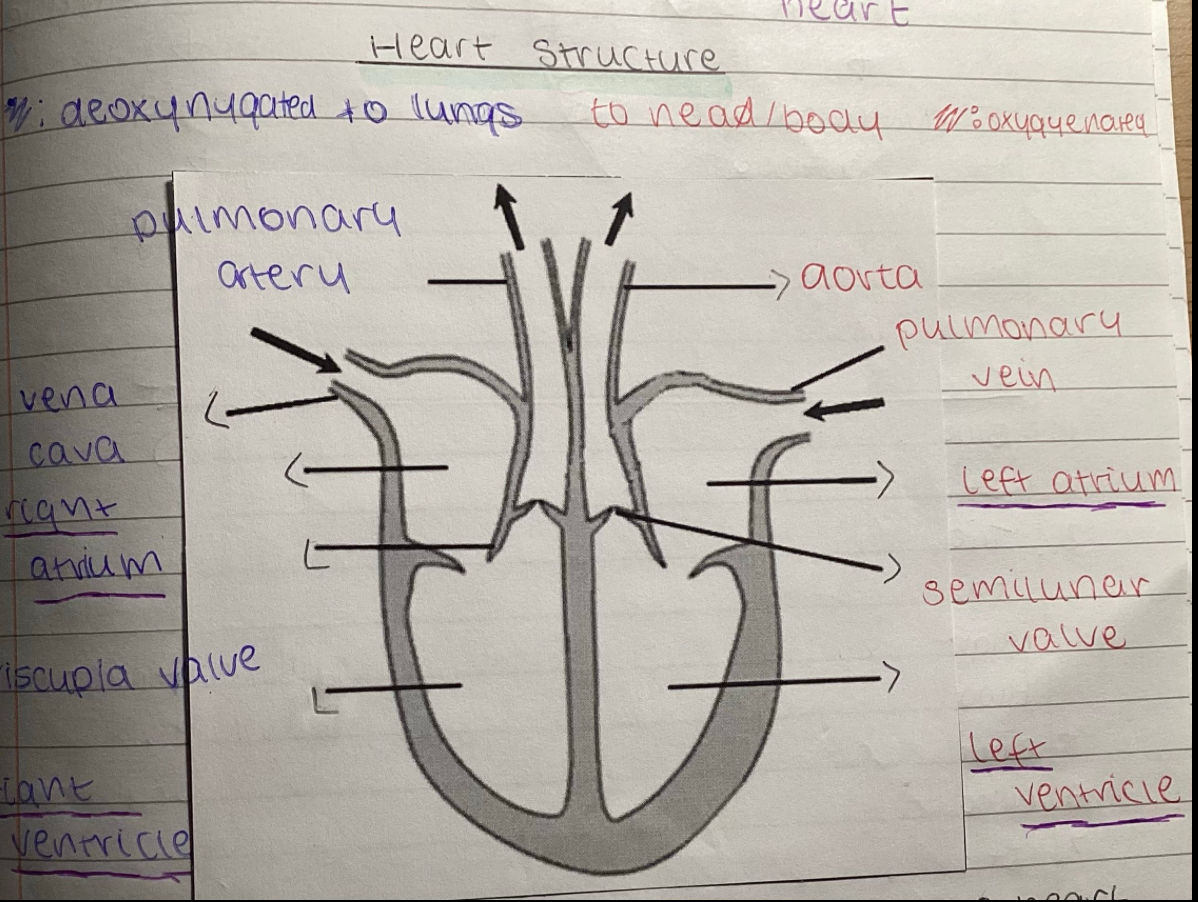 heart
Heart Structure
: deoxynygated to lungs to head/body : oxyqyenated
pulmonary
artery
aorta
pulmonary
vein
vena
cava
right
atrium
left atrium
semilunar
valve
iscupla valve
left
ventricle
iant
ventricle
heart